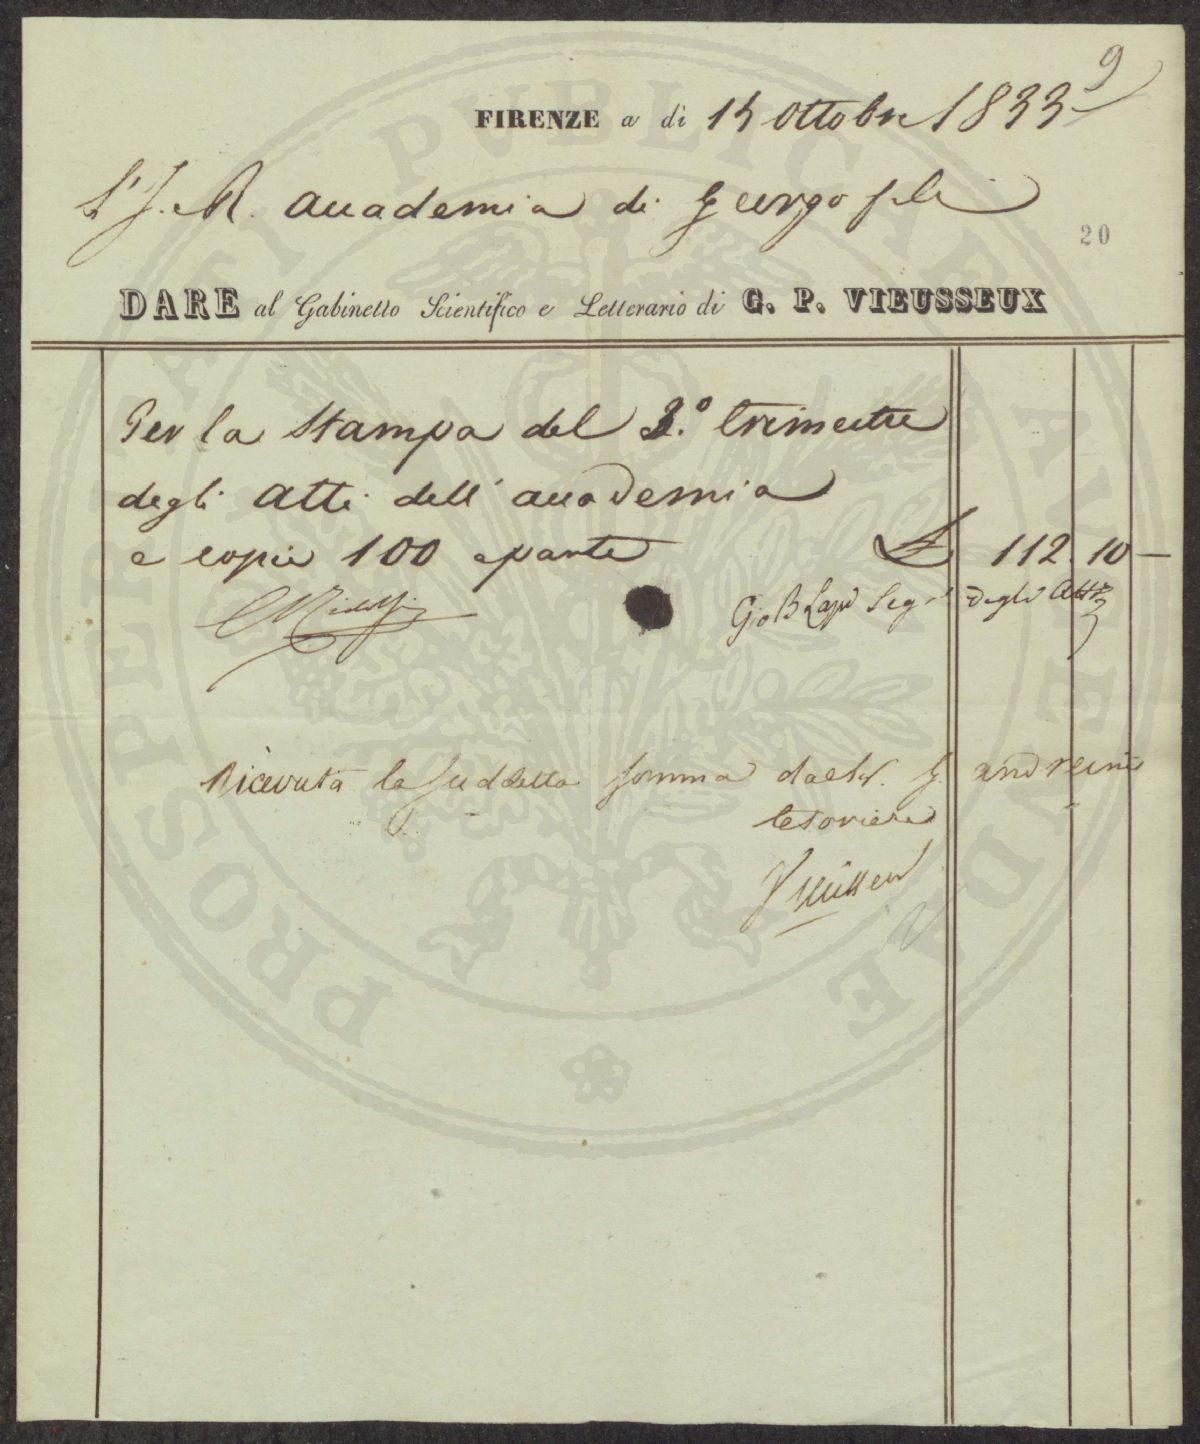 9
FIRENZE a dì 15 Ottobre 1833
L'I. R. Accademia di Georgofili
20
DARE al Gabinetto Scientifico e Letterario di G. P. VIEUSSEUX
Per la Stampa del 3.º trimestre
degli Atti dell'accademia
e copie 100 aparte £ 112. 10 —
C Ridolfi Gio B Lapi Segr degli Atti
Ricevuta la suddetta somma dal Sr. G. Andreini
tesoriere
Vieusseux
PROSPERITATI PVBLICAE AVGENDAE